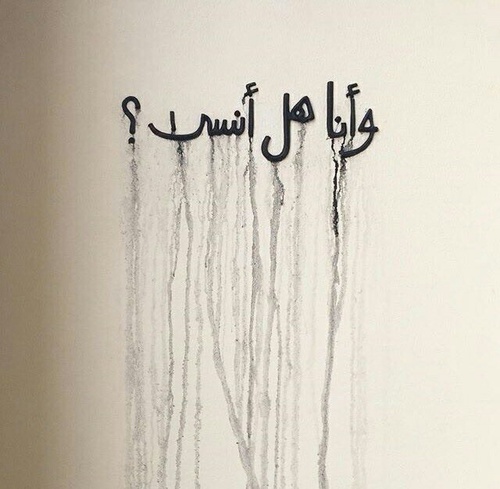 وأنا هل أنسى ؟